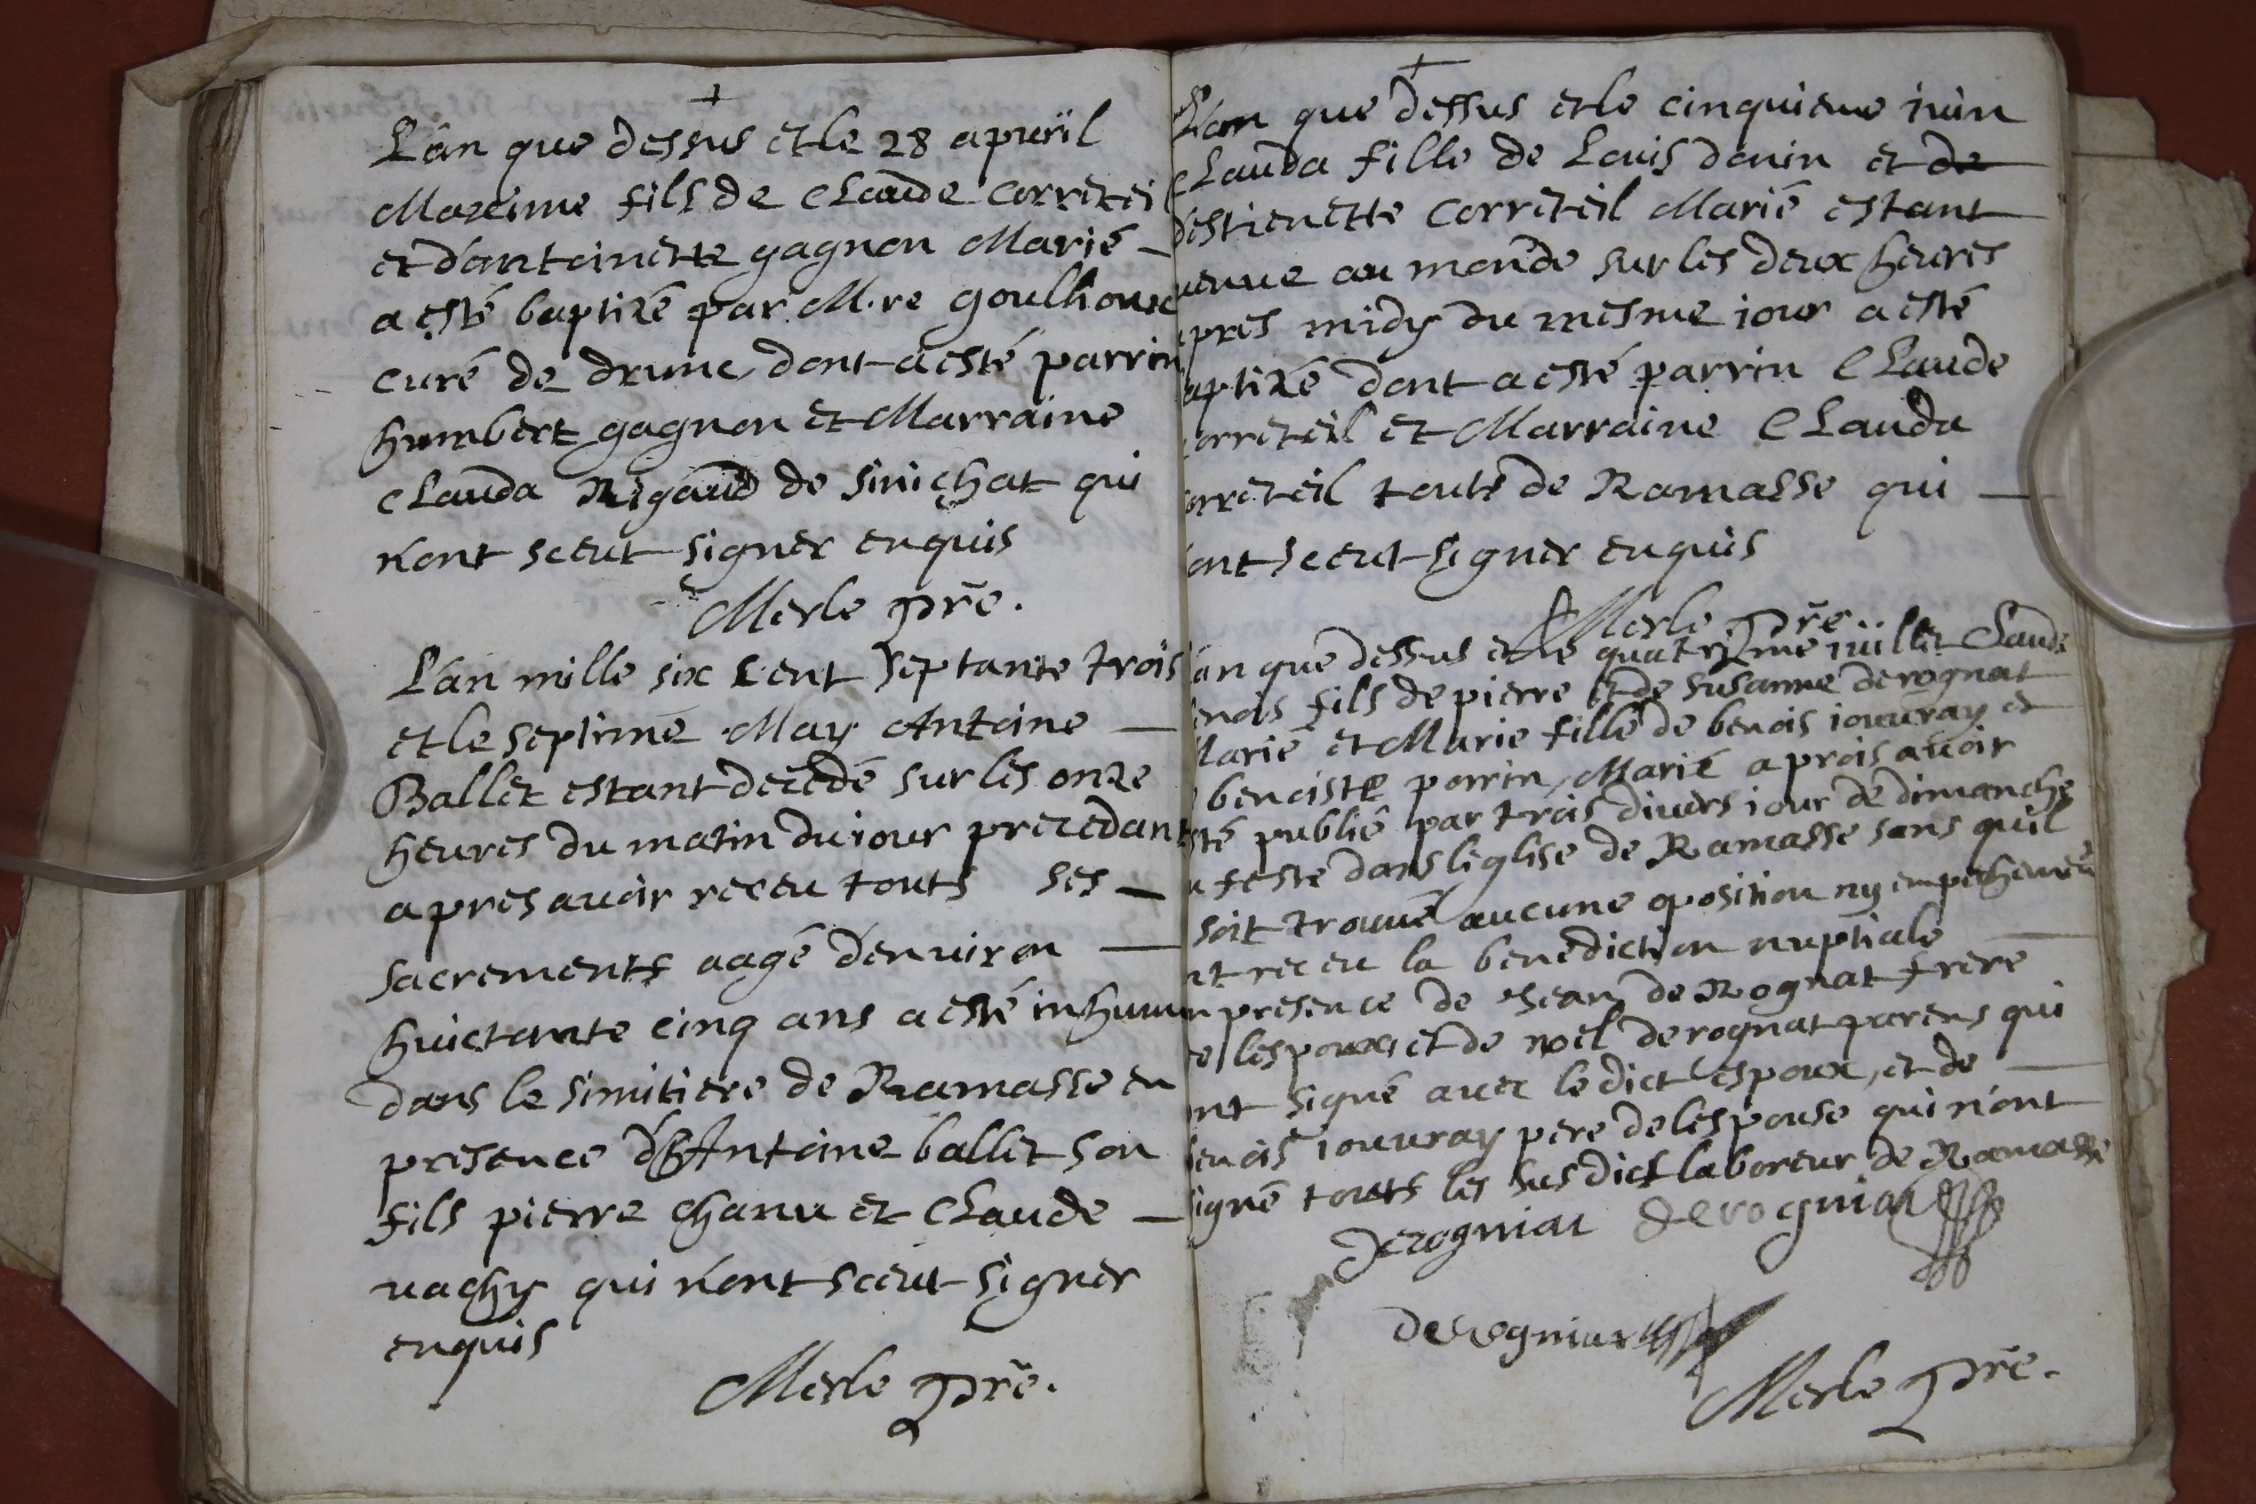 L'an que dessus et le 28 apuril
Maxime fils de Claude Correteil
et d'antoinette gagnon Marié
a esté baptizé par M.re goulhoux
curé de drunc dont a esté parrin
humbert gagnon et Marraine
Clauda Rigaud de sinichat qui
n'ont sceut signer enquis
Merle pre.
L'an mille six cent septante trois
et le septime May Antoine
Ballet estant decedé sur les onze
heures du matin du iour precedant
apres auoir receu touts ses
sacrements aagé d'enuiron
huictante cinq ans a esté inhumé
dans le simitiere de Ramasse en
presence d'Antoine ballet son
fils pierre chanu et Claude
uachy qui n'ont sceut signer
enquis
Merle pre.
L'an que dessus et le cinquieme iuin
Clauda fille de Louis douin et de
destienette Correteil Marié estant
uenue au monde sur les deux heures
apres midy du mesme iour a esté
baptizé dont a esté parrin Claude
Correteil et Marraine Clauda
Correteil touts de Ramasse qui
n'ont sceut signer enquis
Merle pre
L'an que dessus et le quatrizme iuillet Claude
benois fils de pierre et de susanne derognat
Marié et Marie fille de benois iouuray et
benoiste porrin Marié aprois auoir
esté publié par trois diuers iour de dimanche
ou feste dans l'eglise de Ramasse sans quil
soit trouué aucune oposition ny empechement
ont receu la benediction nuptiale
en presence de Jean de Rognat frere
de lespoux et de noel derognat parens qui
ont signé auec le dict espoux, et de
benois iouuray pere de lespouse qui n'ont
signé touts les susdict laboreur de Ramasse
Derogniat derogniat
derogniat
Merle pre.